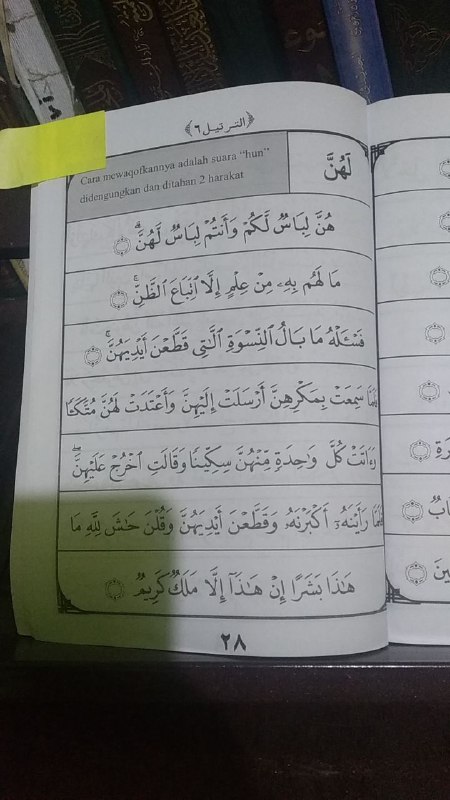 الترتيل ٦
Cara mewaqofkannya adalah suara "hun"
didengungkan dan ditahan 2 harakat
لَهُنَّ
هُنَّ لِبَاسٌ لَّكُمْ وَأَنتُمْ لِبَاسٌ لَّهُنَّ ۗ
مَا لَهُم بِهِۦ مِنْ عِلْمٍ إِلَّا ٱتِّبَاعَ ٱلظَّنِّ ۚ
فَسْـَٔلْهُ مَا بَالُ ٱلنِّسْوَةِ ٱلَّـٰتِى قَطَّعْنَ أَيْدِيَهُنَّ ۚ
فَلَمَّا سَمِعَتْ بِمَكْرِهِنَّ أَرْسَلَتْ إِلَيْهِنَّ وَأَعْتَدَتْ لَهُنَّ مُتَّكَـًٔا
وَءَاتَتْ كُلَّ وَٰحِدَةٍ مِّنْهُنَّ سِكِّينًا وَقَالَتِ ٱخْرُجْ عَلَيْهِنَّ ۖ
فَلَمَّا رَأَيْنَهُۥٓ أَكْبَرْنَهُۥ وَقَطَّعْنَ أَيْدِيَهُنَّ وَقُلْنَ حَـٰشَ لِلَّهِ مَا
هَـٰذَا بَشَرًا إِنْ هَـٰذَآ إِلَّا مَلَكٌ كَرِيمٌ
٢٨